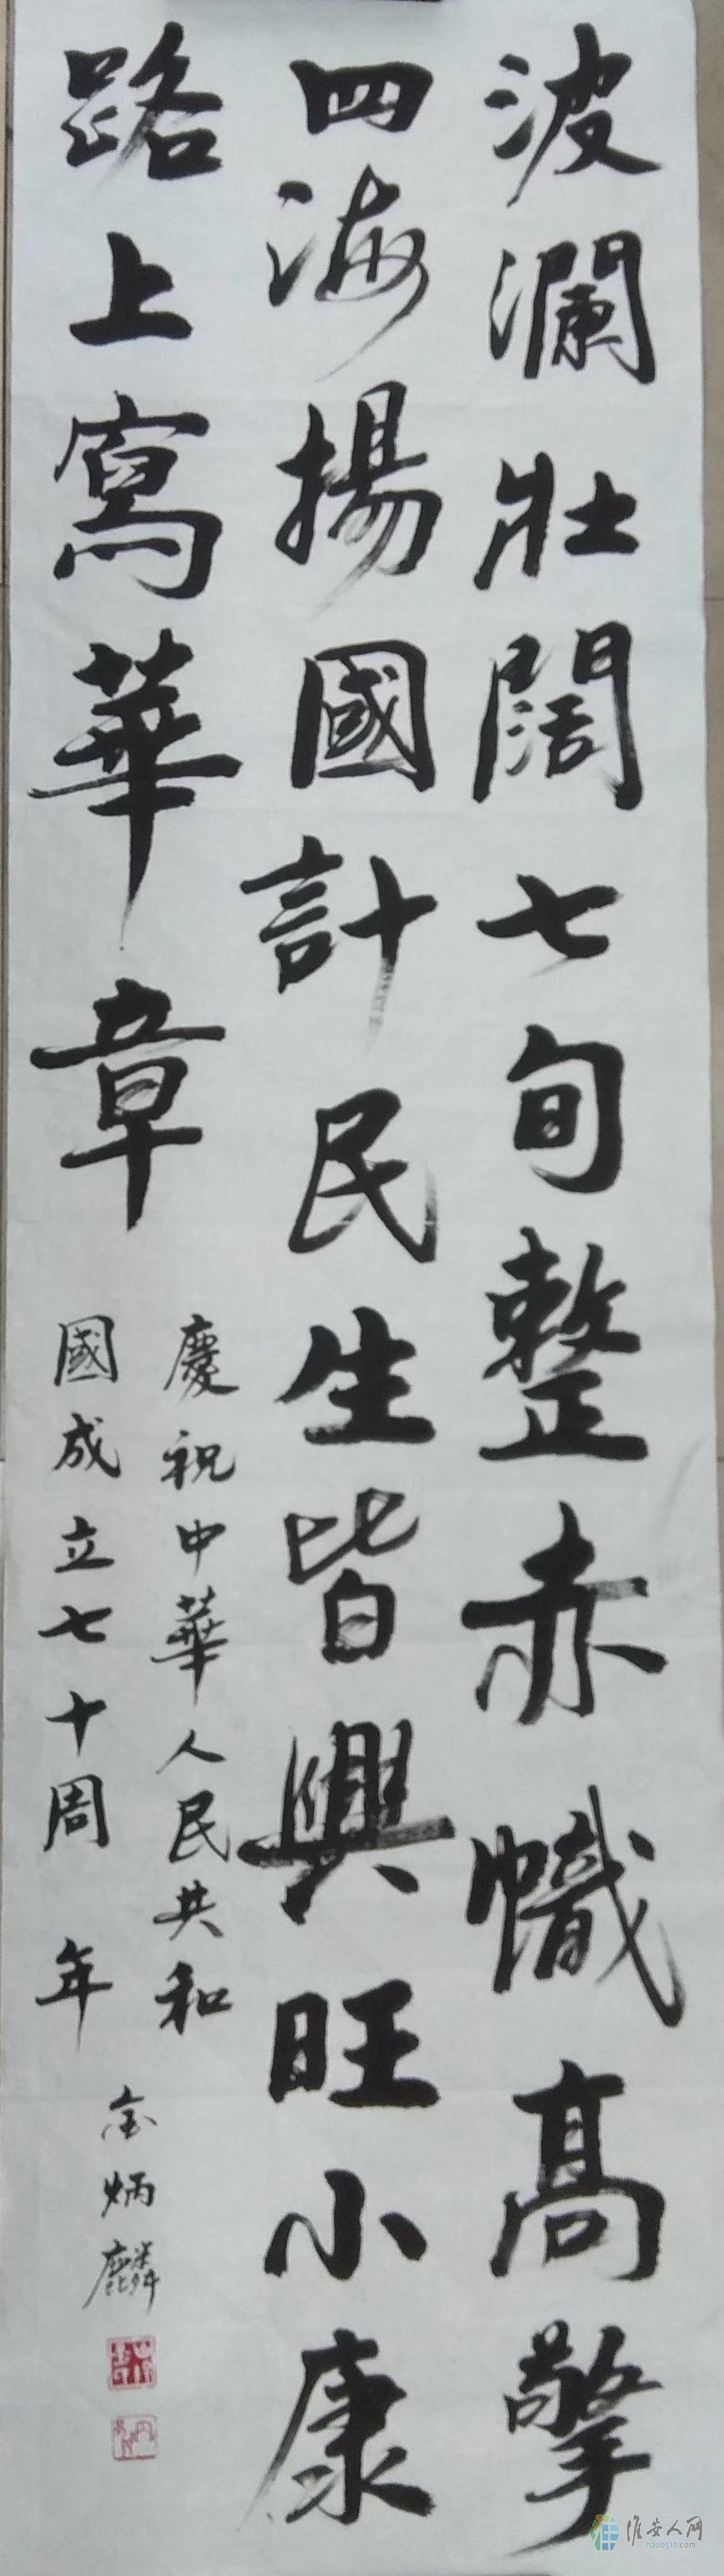 波瀾壯闊七旬整赤幟高擎
四海揚國計民生皆興旺小康
路上寫華章
慶祝中華人民共和
國成立七十周年
金炳麟
淮安人网
hao0517.com